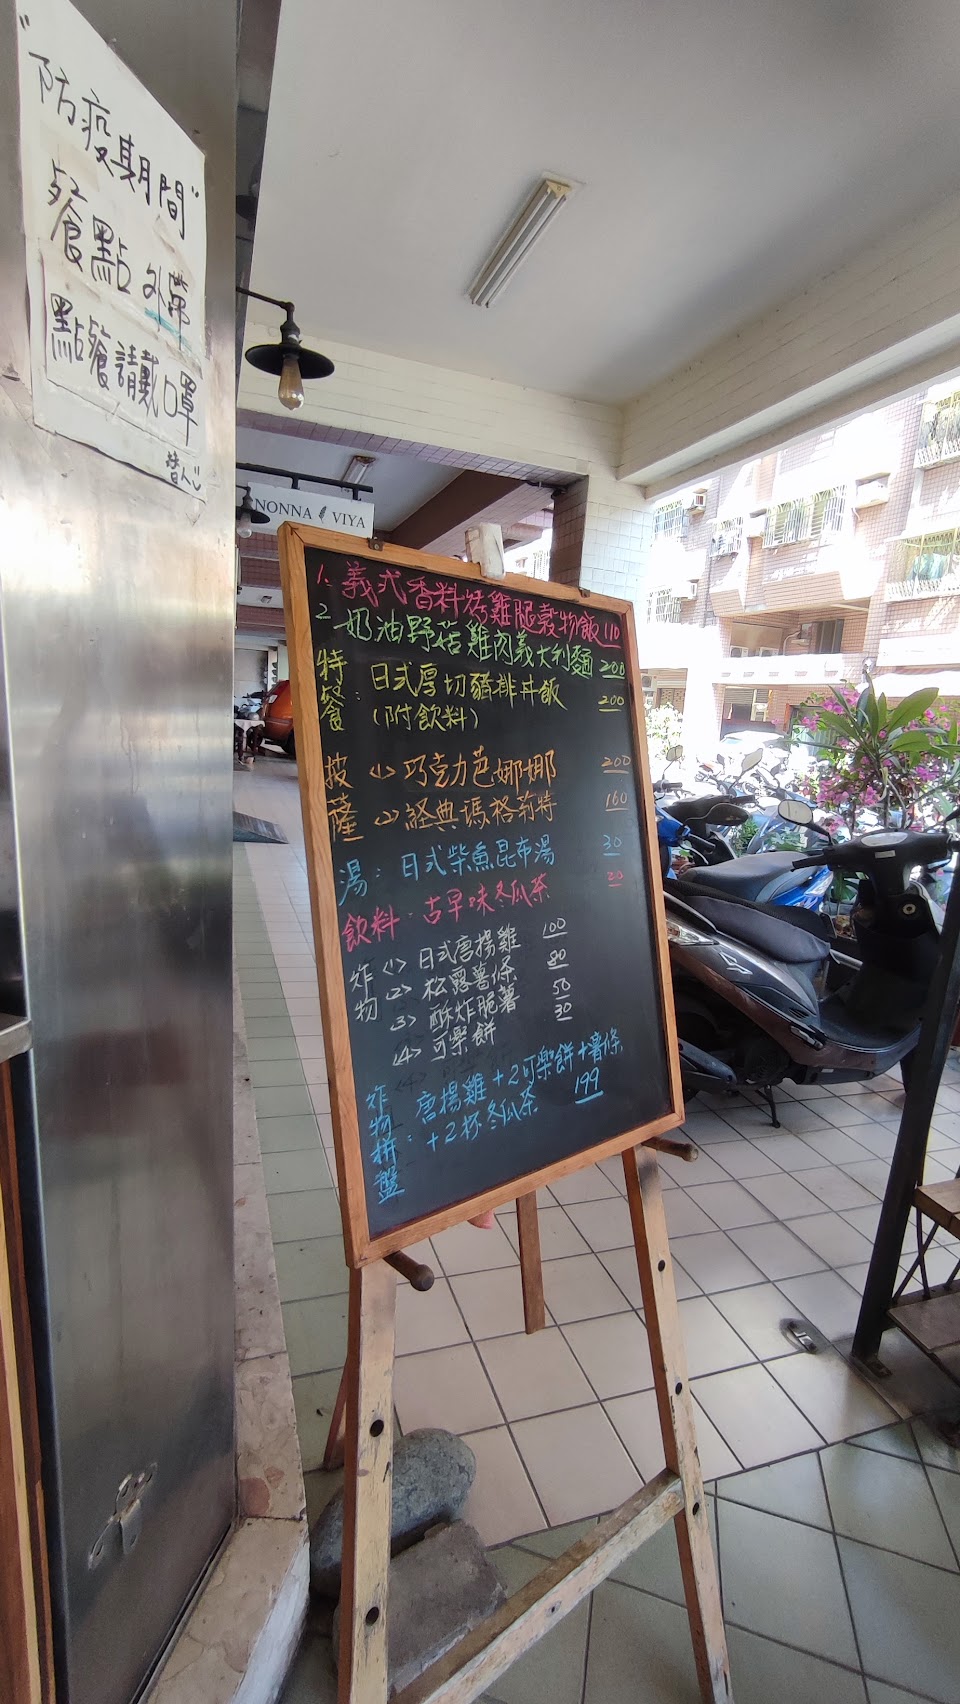 "防疫期間"
餐點外帶
點餐請戴口罩
NONNA VIYA
1、義式香料烤雞腿穀物飯 110
2、奶油野菇雞肉義大利麵 200
特餐：日式厚切豬排丼飯 200
(附飲料)
披薩 <1> 巧克力芭娜娜 200
<2> 經典瑪格莉特 160
湯：日式柴魚昆布湯 30
飲料：古早味冬瓜茶 20
炸物 <1> 日式唐揚雞 100
<2> 松露薯條 80
<3> 酥炸脆薯 50
<4> 可樂餅 30
炸物拼盤：唐揚雞+2可樂餅+薯條
+2杯冬瓜茶 199